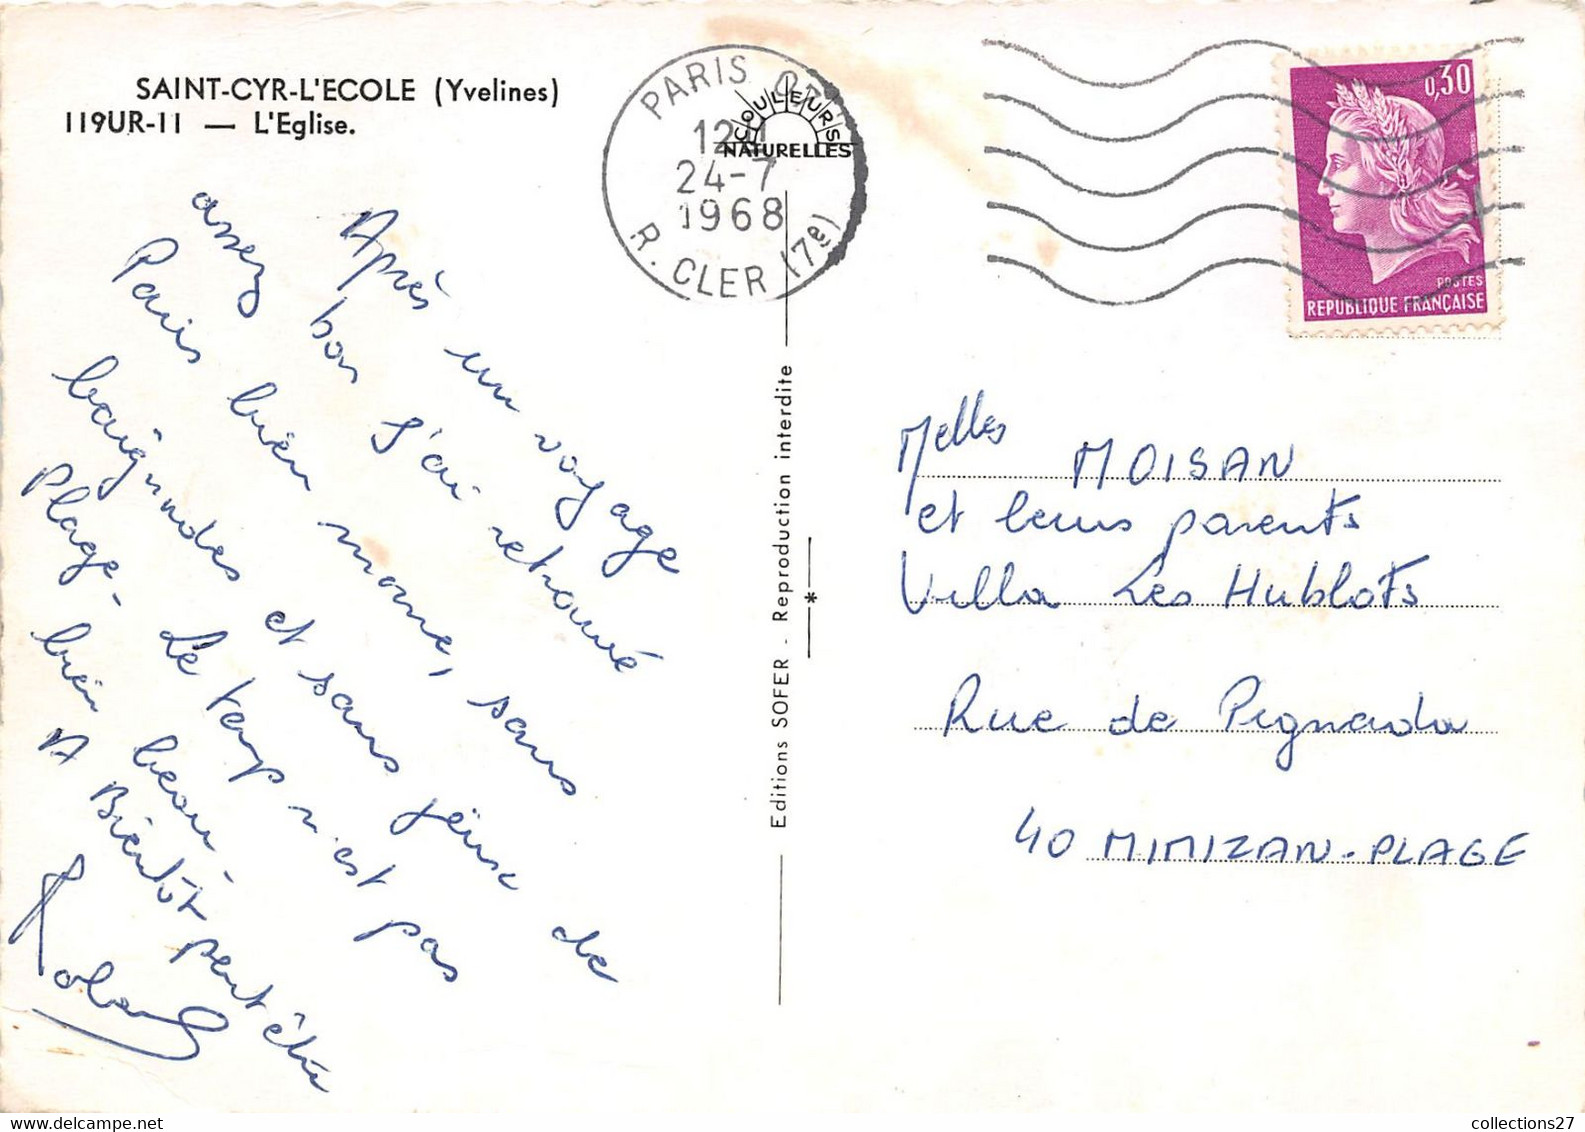 SAINT-CYR-L'ECOLE (Yvelines)
119UR-11 — L'Eglise.
Après un voyage
assez bon j'ai retrouvé
Paris bien morne, sans
baignades et sans jeux de
Plage - Le temps n'est pas
bien beau -
A Bientôt peut être
Roland
PARIS
24-7
1968
R. CLER (7e)
COULEURS
NATURELLES
Editions SOFER - Reproduction interdite
0,30
POSTES
REPUBLIQUE FRANÇAISE
Melles MOISAN
et leurs parents
Villa Les Hublots
Rue de Pignada
40 MIMIZAN-PLAGE
collections27